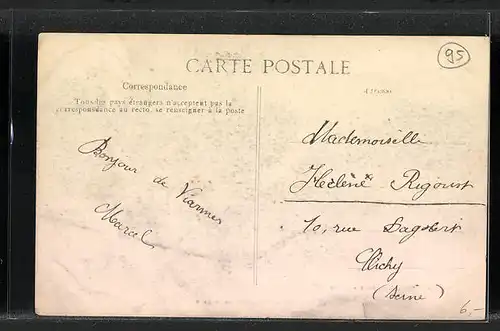 95
CARTE POSTALE
Correspondance
Tous les pays étrangers n'acceptent pas la
correspondance au recto, se renseigner à la poste
Bonjour de Viarmes
Marcel
Mademoiselle
Hélène Rigourt
10, rue Dagobert
Clichy
(Seine)
6,-